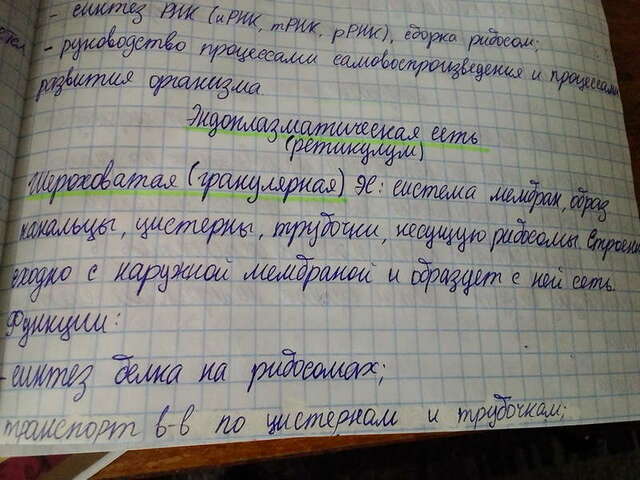 - синтез РНК (иРНК, тРНК, рРНК), сборка рибосом;
- руководство процессами самовоспроизведения и процессами
развития организма
Эндоплазматическая сеть
(ретикулум)
Шероховатая (гранулярная) ЭС: система мембран, образ
канальцы, цистерны, трубочки, несущую рибосомы. Строени
сходно с наружной мембраной и образует с ней сеть.
Функции:
- синтез белка на рибосомах;
транспорт в-в по цистернам и трубочкам;